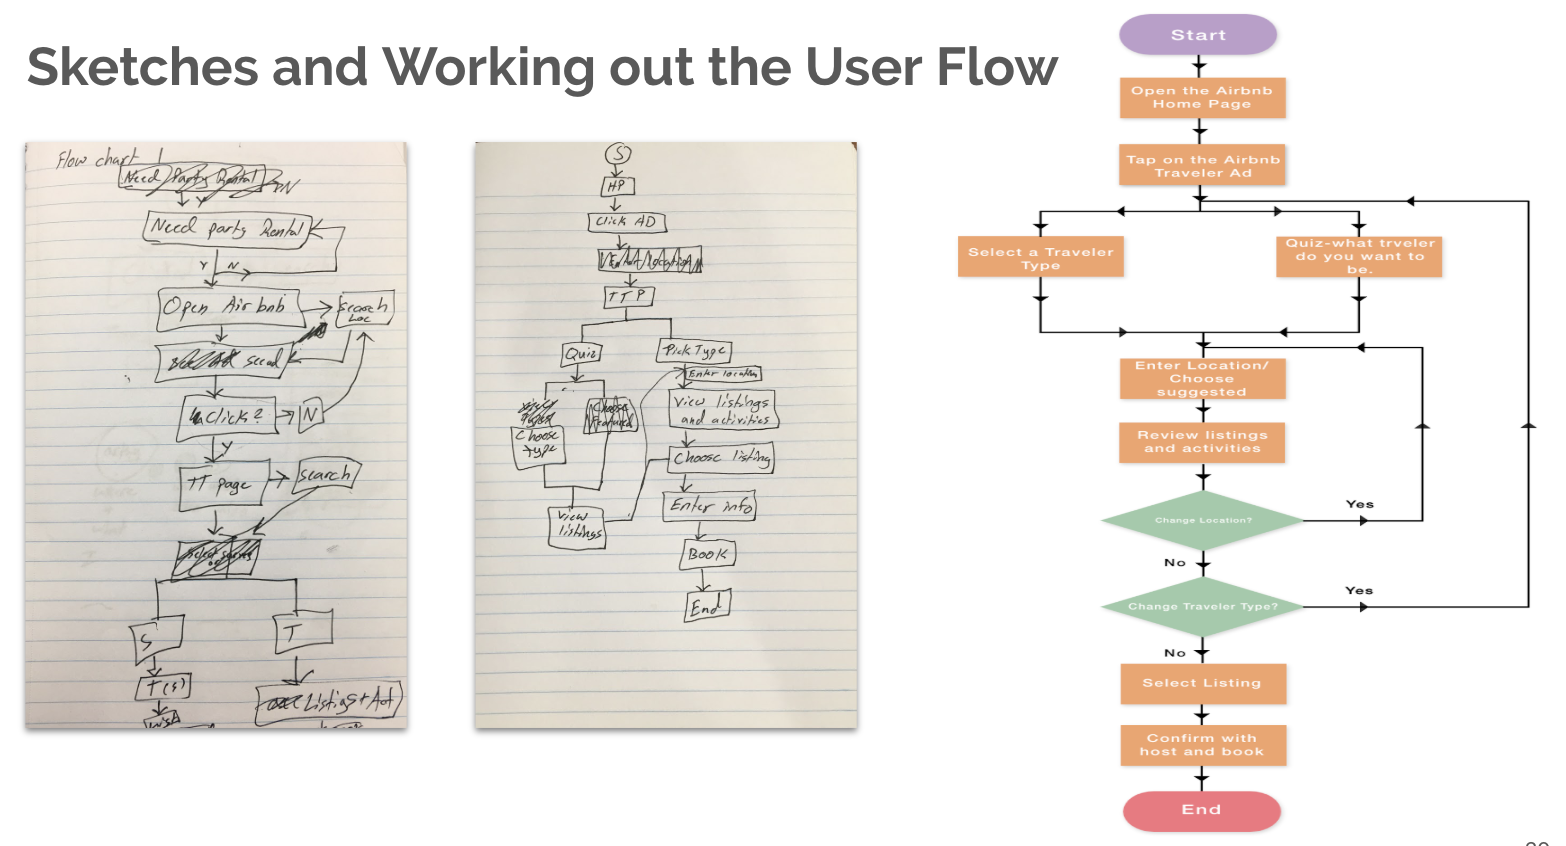 Sketches and Working out the User Flow
Flow chart 1
Need Party Rental
N
Y
Need party Rental
Y
N
Open Airbnb
search
Loc
seead
Click?
N
Y
TT page
search
S
T
T(s)
Listings + Act
S
HP
Click AD
TTP
Quiz
Pick Type
Enter location
View listings
and activities
Choose
type
Choose
Featured
Choose listing
View
listings
Enter info
Book
End
Start
Open the Airbnb
Home Page
Tap on the Airbnb
Traveler Ad
Select a Traveler
Type
Quiz-what trveler
do you want to
be.
Enter Location/
Choose
suggested
Review listings
and activities
Change Location?
Yes
No
Change Traveler Type?
Yes
No
Select Listing
Confirm with
host and book
End